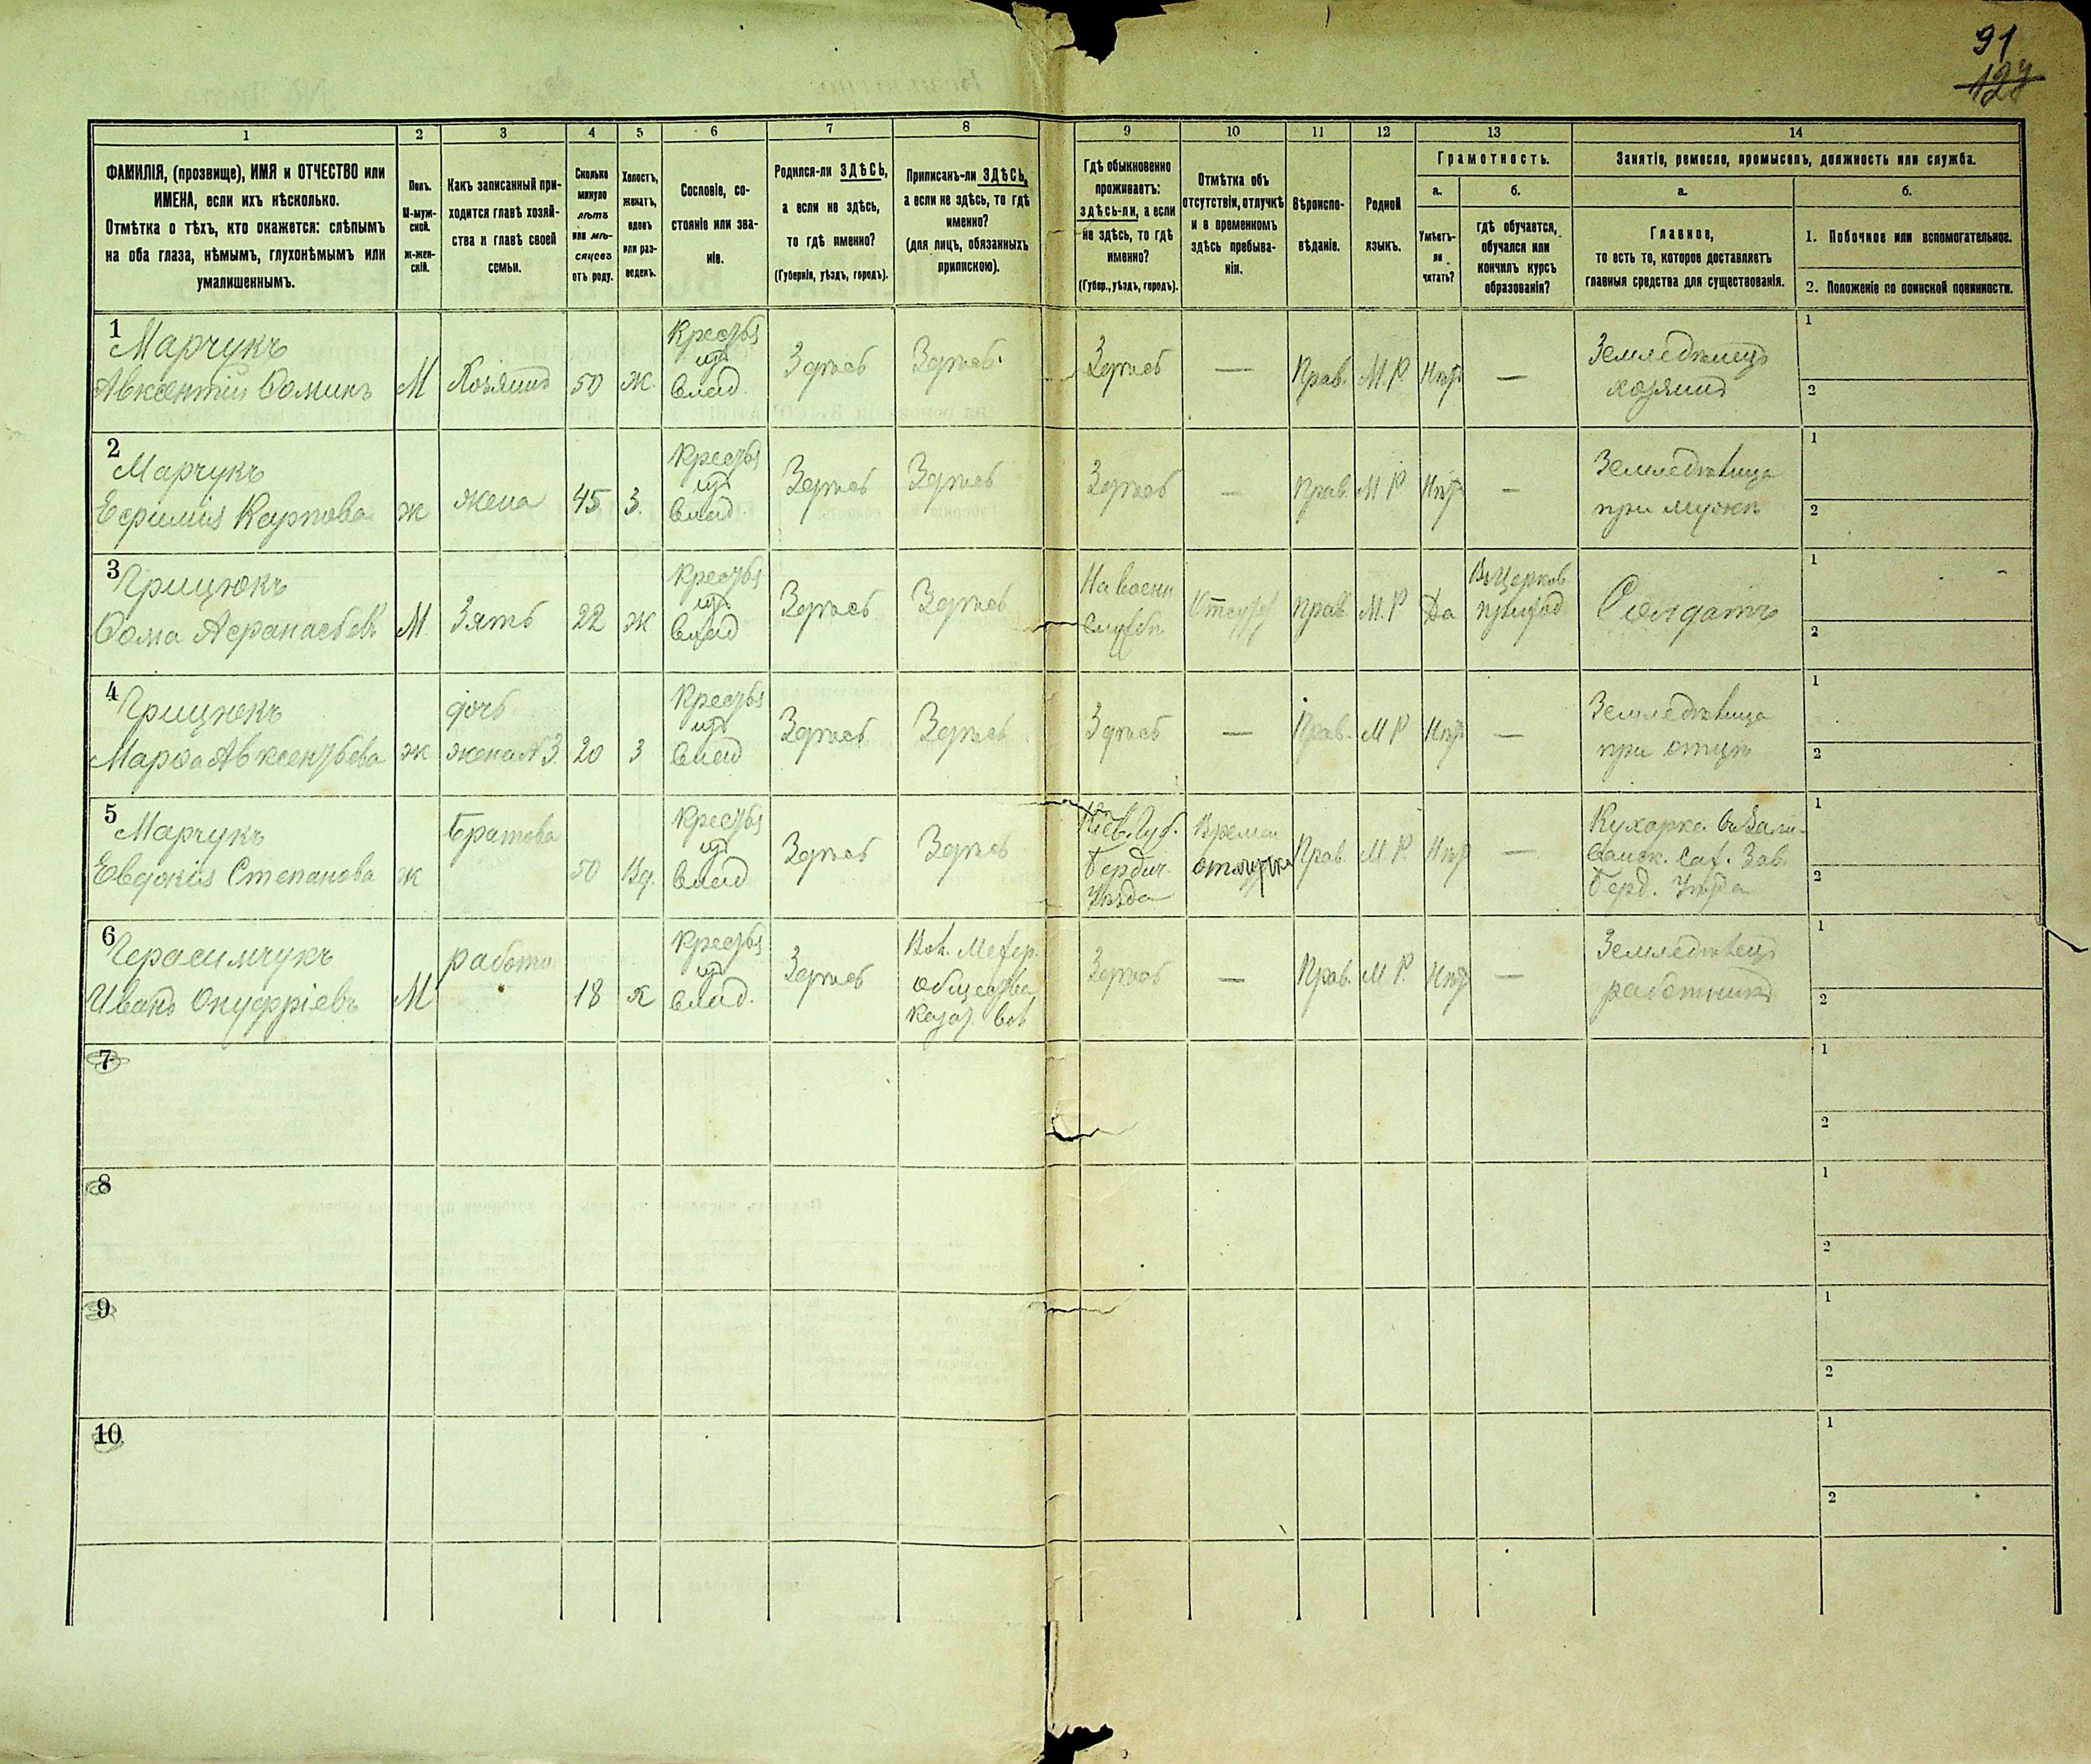 91
127
1 2 3 4 5 6 7 8 9 10 11 12 13 14
ФАМИЛІЯ, (прозвище), ИМЯ и ОТЧЕСТВО или
ИМЕНА, если ихъ нѣсколько.
Отмѣтка о тѣхъ, кто окажется: слѣпымъ
на оба глаза, нѣмымъ, глухонѣмымъ или
умалишеннымъ.
Полъ.
М-муж-
ской.
ж-жен-
скій.
Какъ записанный при-
ходится главѣ хозяй-
ства и главѣ своей
семьи.
Сколько
минуло
лѣтъ
или мѣ-
сяцевъ
отъ роду.
Холостъ,
женатъ,
вдовъ
или раз-
веденъ.
Сословіе, со-
стояніе или зва-
ніе.
Родился-ли ЗДѢСЬ,
а если не здѣсь,
то гдѣ именно?
(Губернія, уѣздъ, городъ).
Приписанъ-ли ЗДѢСЬ,
а если не здѣсь, то гдѣ
именно?
(для лицъ, обязанныхъ
припискою).
Гдѣ обыкновенно
проживаетъ:
здѣсь-ли, а если
не здѣсь, то гдѣ
именно?
(Губер., уѣздъ, городъ).
Отмѣтка объ
отсутствіи, отлучкѣ
и о временномъ
здѣсь пребыва-
ніи.
Вѣроиспо-
вѣданіе.
Родной
языкъ.
Грамотность.
а.
Умѣетъ-
ли
читать?
б.
гдѣ обучается,
обучался или
кончилъ курсъ
образованія?
Занятіе, ремесло, промыселъ, должность или служба.
а.
Главное,
то есть то, которое доставляетъ
главныя средства для существованія.
б.
1. Побочное или вспомогательное.
2. Положеніе по воинской повинности.
1
Марчукъ
Авксентій Ѳоминъ
М
Хозяинъ
50
ж.
Крестья
изъ
влад.
Здѣсь
Здѣсь
Здѣсь
—
Прав.
М.Р.
Нѣтъ
—
Земледѣлецъ
хозяинъ
1
2
2
Марчукъ
Евфимія Карпова
ж
жена
45
З.
Крестья
изъ
влад.
Здѣсь
Здѣсь
Здѣсь
—
Прав.
М Р
Нѣтъ
—
Земледѣлица
при мужѣ
1
2
3
Грицюкъ
Ѳома Афанасьевъ
М.
Зять
22
ж
Крестья
изъ
влад
Здѣсь
Здѣсь
На воени
службѣ
Отсут
Прав.
М.Р
Да
Въ Церков
приход
Солдатъ
1
2
4
Грицюкъ
Марѳа Авксентьева
ж
дочь
жена N3.
20
З
Крестья
изъ
влад
Здѣсь
Здѣсь
Здѣсь
—
Прав.
М Р
Нѣтъ
—
Земледѣлица
при отцѣ
1
2
5
Марчукъ
Евдокія Степанова
ж
Братова
50
Вд.
Крестья
изъ
влад
Здѣсь
Здѣсь
Кіев. Губ.
Бердич.
Уѣзда
Времен
отлучка
Прав.
М.Р.
Нѣтъ
—
Кухарка
Сах. Зав.
Берд. Уѣзда
1
2
6
Герасимчукъ
Иванъ Онуфріевъ
М
работн.
18
х
Крестья
изъ
влад.
Здѣсь
общества
вол
Здѣсь
—
Прав.
М Р.
Нѣтъ
—
Земледѣлецъ
работникъ
1
2
7
1
2
8
1
2
9
1
2
10
1
2